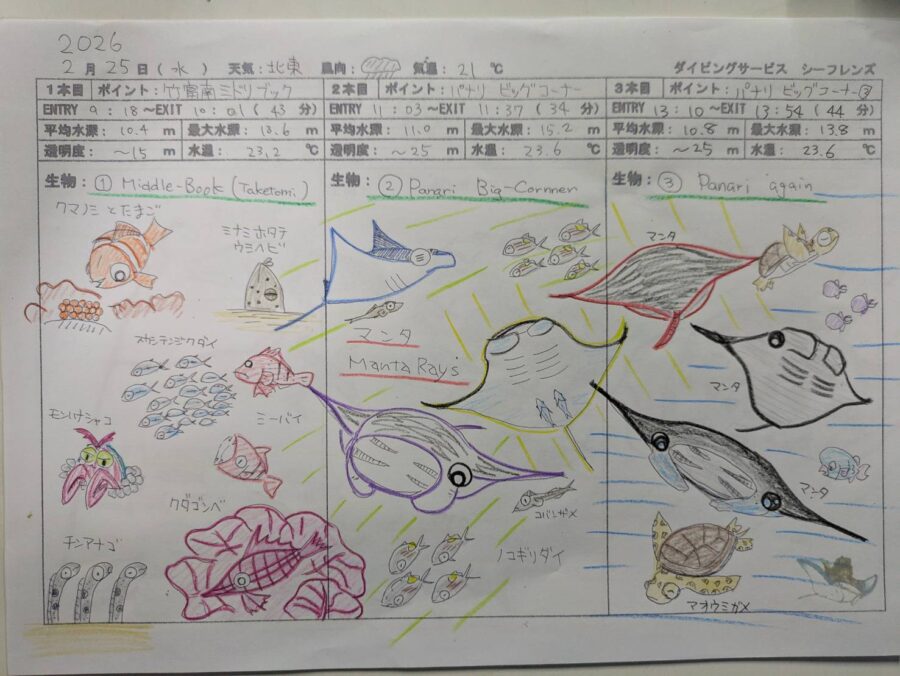 2026
2月25日(水) 天気:北東 風向: 気温:21℃ ダイビングサービス シーフレンズ
1本目 ポイント:竹富南ミドリブック
ENTRY 9:18～EXIT 10:01(43分)
平均水深:10.4m 最大水深:13.6m
透明度:～15m 水温:23.2℃
生物:① Middle-Book (Taketomi)
クマノミとたまご
ミナミホタテ
ウミヘビ
スカシテンジクダイ
ミーバイ
モンハナシャコ
クダゴンベ
チンアナゴ
2本目 ポイント:パナリ ビッグコーナー
ENTRY 11:03～EXIT 11:37(34分)
平均水深:11.0m 最大水深:15.2m
透明度:～25m 水温:23.6℃
生物:② Panari Big-Cornner
マンタ
Manta Ray's
コバンザメ
ノコギリダイ
3本目 ポイント:パナリ ビッグコーナー②
ENTRY 13:10～EXIT 13:54(44分)
平均水深:10.8m 最大水深:13.8m
透明度:～25m 水温:23.6℃
生物:③ Panari again
マンタ
マンタ
マンタ
マオウミガメ